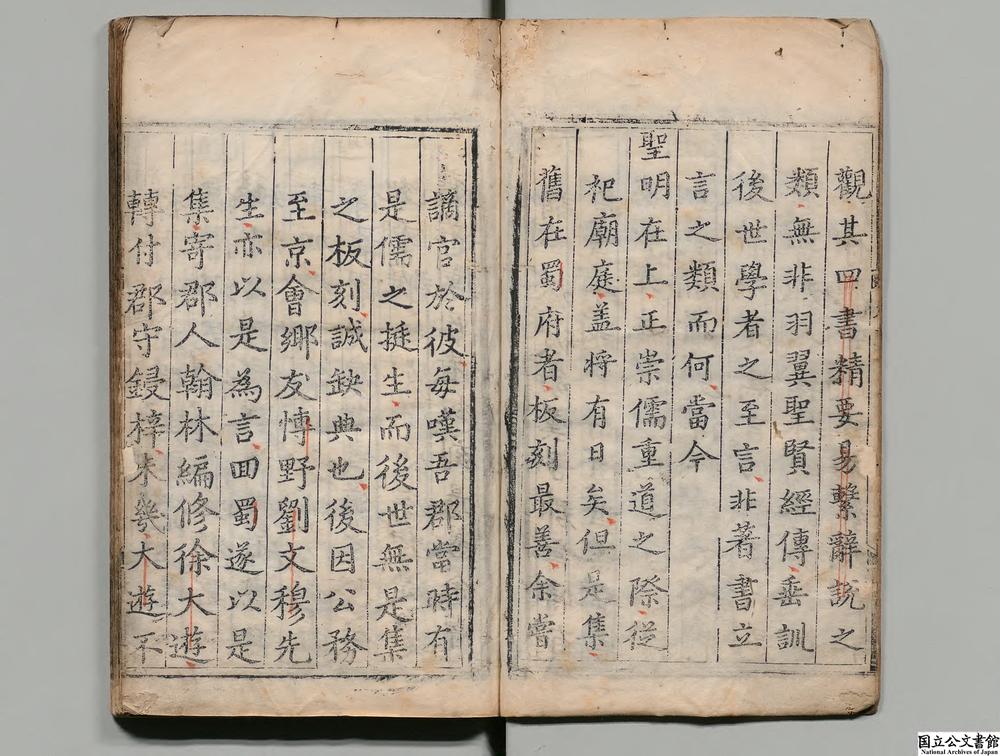 觀其四書精要易繫辭說之
類無非羽翼聖賢經傳垂訓
後世學者之至言非著書立
言之類而何當今
聖明在上正崇儒重道之際從
祀廟庭盖將有日矣但是集
舊在蜀府者板刻最善余嘗
謫官於彼每嘆吾郡當時有
是儒之挺生而後世無是集
之板刻誠缺典也後因公務
至京會鄉友博野劉文穆先
生亦以是為言回蜀遂以是
集寄郡人翰林編修徐大遊
轉付郡守鋟梓未幾大遊不
国立公文書館
National Archives of Japan